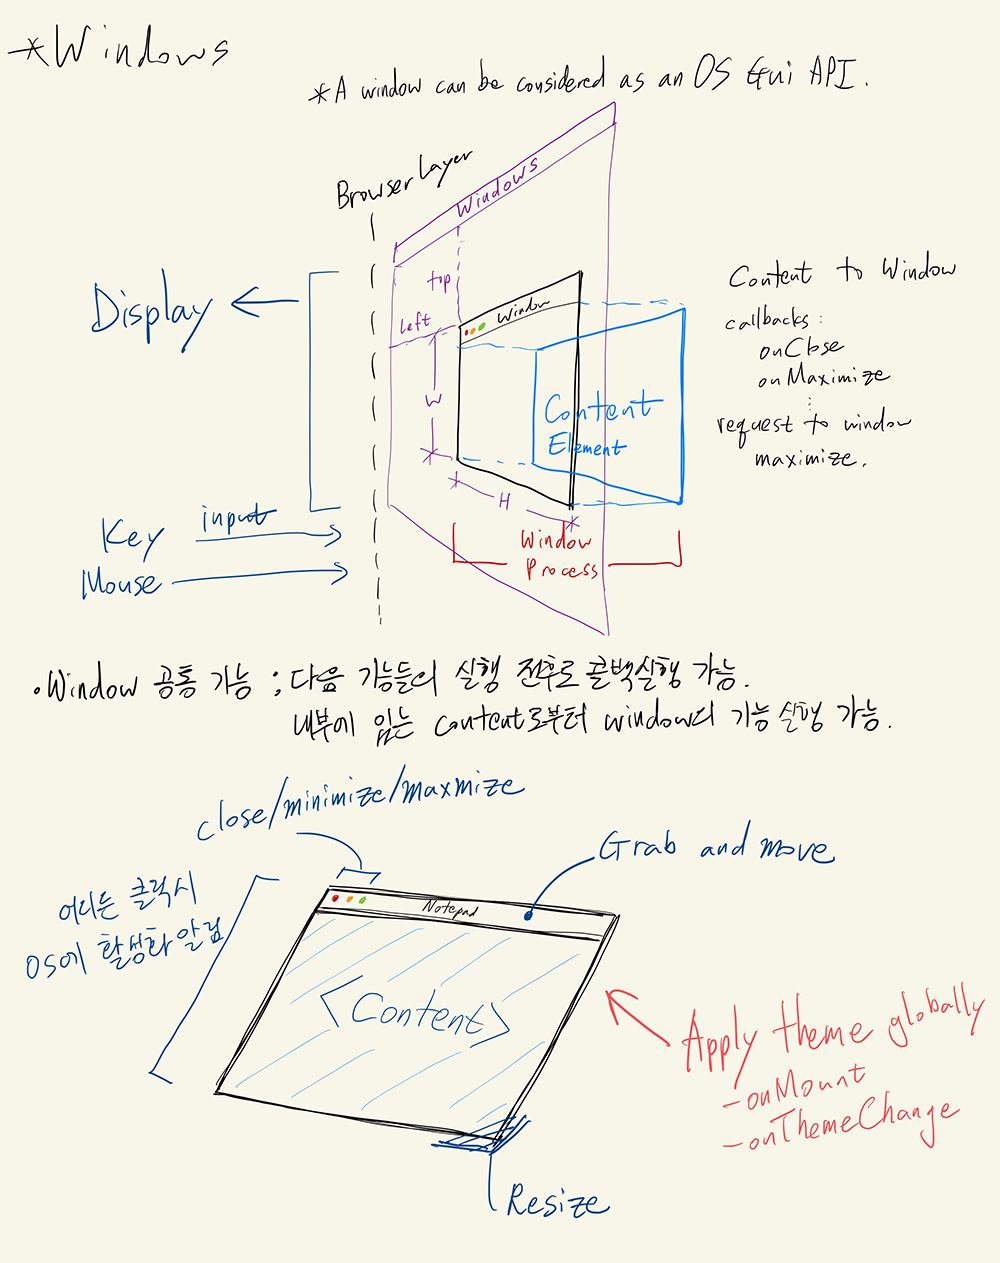 *Windows
*A window can be considered as an OS Gui API.
Browser Layer
Windows
top
left
Window
W
H
Content
Element
Window
Process
Display
Key input
Mouse
Content to Window
callbacks :
onClose
onMaximize
request to window
maximize.
•Window 공통 기능 ; 다음 기능들의 실행 전후로 콜백실행 가능.
내부에 있는 content로부터 window의 기능 실행 가능.
close/minimize/maxmize
Grab and move
어디든 클릭시
OS에 활성화 알림
Notepad
<Content>
Apply theme globally
-onMount
-onThemeChange
Resize